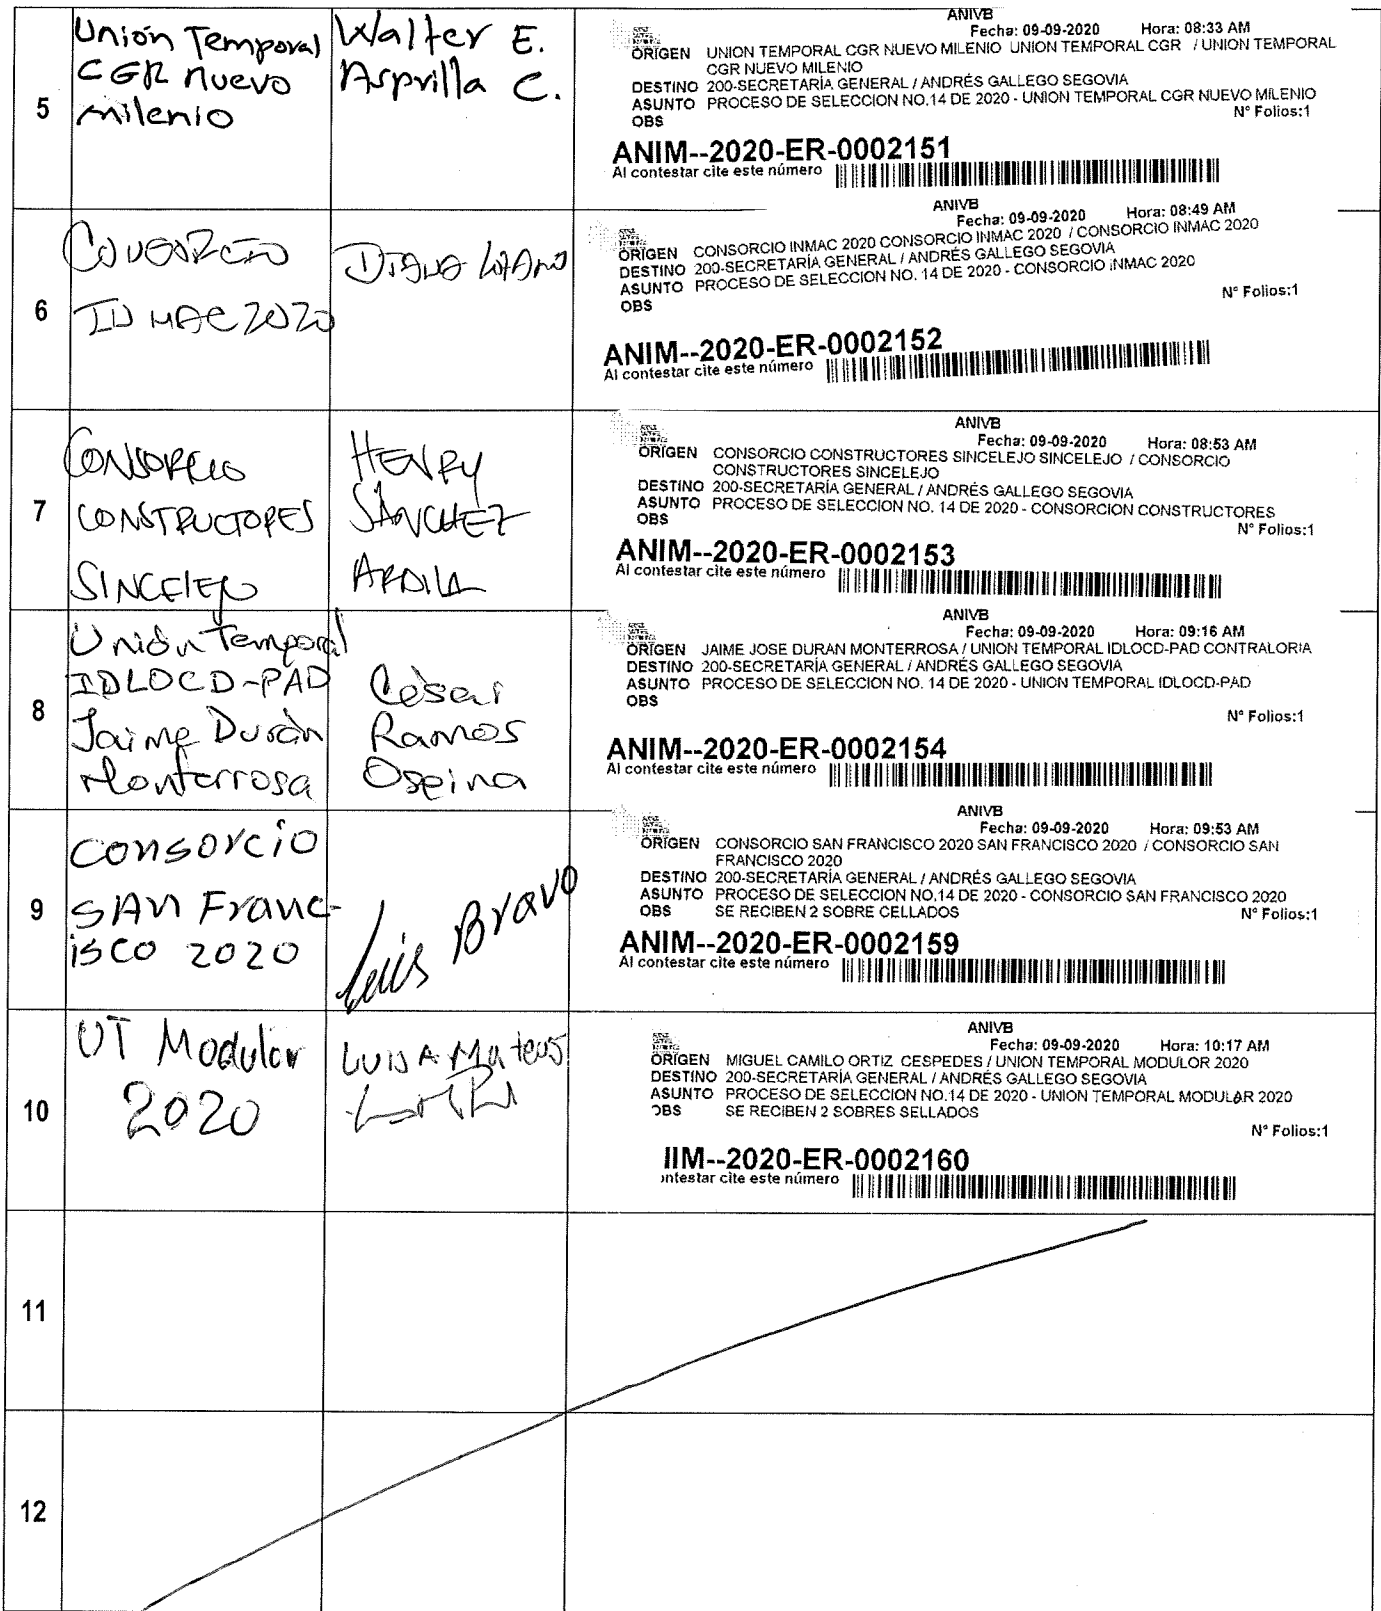 5
Unión Temporal
CGR nuevo
milenio
Walter E.
Asprilla C.
ANIVB
Fecha: 09-09-2020 Hora: 08:33 AM
ORIGEN UNION TEMPORAL CGR NUEVO MILENIO UNION TEMPORAL CGR / UNION TEMPORAL
CGR NUEVO MILENIO
DESTINO 200-SECRETARÍA GENERAL / ANDRÉS GALLEGO SEGOVIA
ASUNTO PROCESO DE SELECCION NO.14 DE 2020 - UNION TEMPORAL CGR NUEVO MILENIO
OBS N° Folios:1
ANIM--2020-ER-0002151
Al contestar cite este número
6
CONSORCIO
INMAC 2020
DIANA
ANIVB
Fecha: 09-09-2020 Hora: 08:49 AM
ORIGEN CONSORCIO INMAC 2020 CONSORCIO INMAC 2020 / CONSORCIO INMAC 2020
DESTINO 200-SECRETARÍA GENERAL / ANDRÉS GALLEGO SEGOVIA
ASUNTO PROCESO DE SELECCION NO. 14 DE 2020 - CONSORCIO INMAC 2020
OBS N° Folios:1
ANIM--2020-ER-0002152
Al contestar cite este número
7
CONSORCIO
CONSTRUCTORES
SINCELEJO
HENRY
SÁNCHEZ
ARDILA
ANIVB
Fecha: 09-09-2020 Hora: 08:53 AM
ORIGEN CONSORCIO CONSTRUCTORES SINCELEJO SINCELEJO / CONSORCIO
CONSTRUCTORES SINCELEJO
DESTINO 200-SECRETARÍA GENERAL / ANDRÉS GALLEGO SEGOVIA
ASUNTO PROCESO DE SELECCION NO. 14 DE 2020 - CONSORCION CONSTRUCTORES
OBS N° Folios:1
ANIM--2020-ER-0002153
Al contestar cite este número
8
Unión Temporal
IDLOCD-PAD
Jaime Durán
Monterrosa
César
Ramos
Ospina
ANIVB
Fecha: 09-09-2020 Hora: 09:16 AM
ORIGEN JAIME JOSE DURAN MONTERROSA / UNION TEMPORAL IDLOCD-PAD CONTRALORIA
DESTINO 200-SECRETARÍA GENERAL / ANDRÉS GALLEGO SEGOVIA
ASUNTO PROCESO DE SELECCION NO. 14 DE 2020 - UNION TEMPORAL IDLOCD-PAD
OBS
N° Folios:1
ANIM--2020-ER-0002154
Al contestar cite este número
9
consorcio
SAN Franc-
isco 2020
Luis Bravo
ANIVB
Fecha: 09-09-2020 Hora: 09:53 AM
ORIGEN CONSORCIO SAN FRANCISCO 2020 SAN FRANCISCO 2020 / CONSORCIO SAN
FRANCISCO 2020
DESTINO 200-SECRETARÍA GENERAL / ANDRÉS GALLEGO SEGOVIA
ASUNTO PROCESO DE SELECCION NO.14 DE 2020 - CONSORCIO SAN FRANCISCO 2020
OBS SE RECIBEN 2 SOBRE CELLADOS N° Folios:1
ANIM--2020-ER-0002159
Al contestar cite este número
10
UT Modulor
2020
LUISA Mateus
ANIVB
Fecha: 09-09-2020 Hora: 10:17 AM
ORIGEN MIGUEL CAMILO ORTIZ CESPEDES / UNION TEMPORAL MODULOR 2020
DESTINO 200-SECRETARÍA GENERAL / ANDRÉS GALLEGO SEGOVIA
ASUNTO PROCESO DE SELECCION NO.14 DE 2020 - UNION TEMPORAL MODULAR 2020
OBS SE RECIBEN 2 SOBRES SELLADOS
N° Folios:1
IIM--2020-ER-0002160
ntestar cite este número
11
12